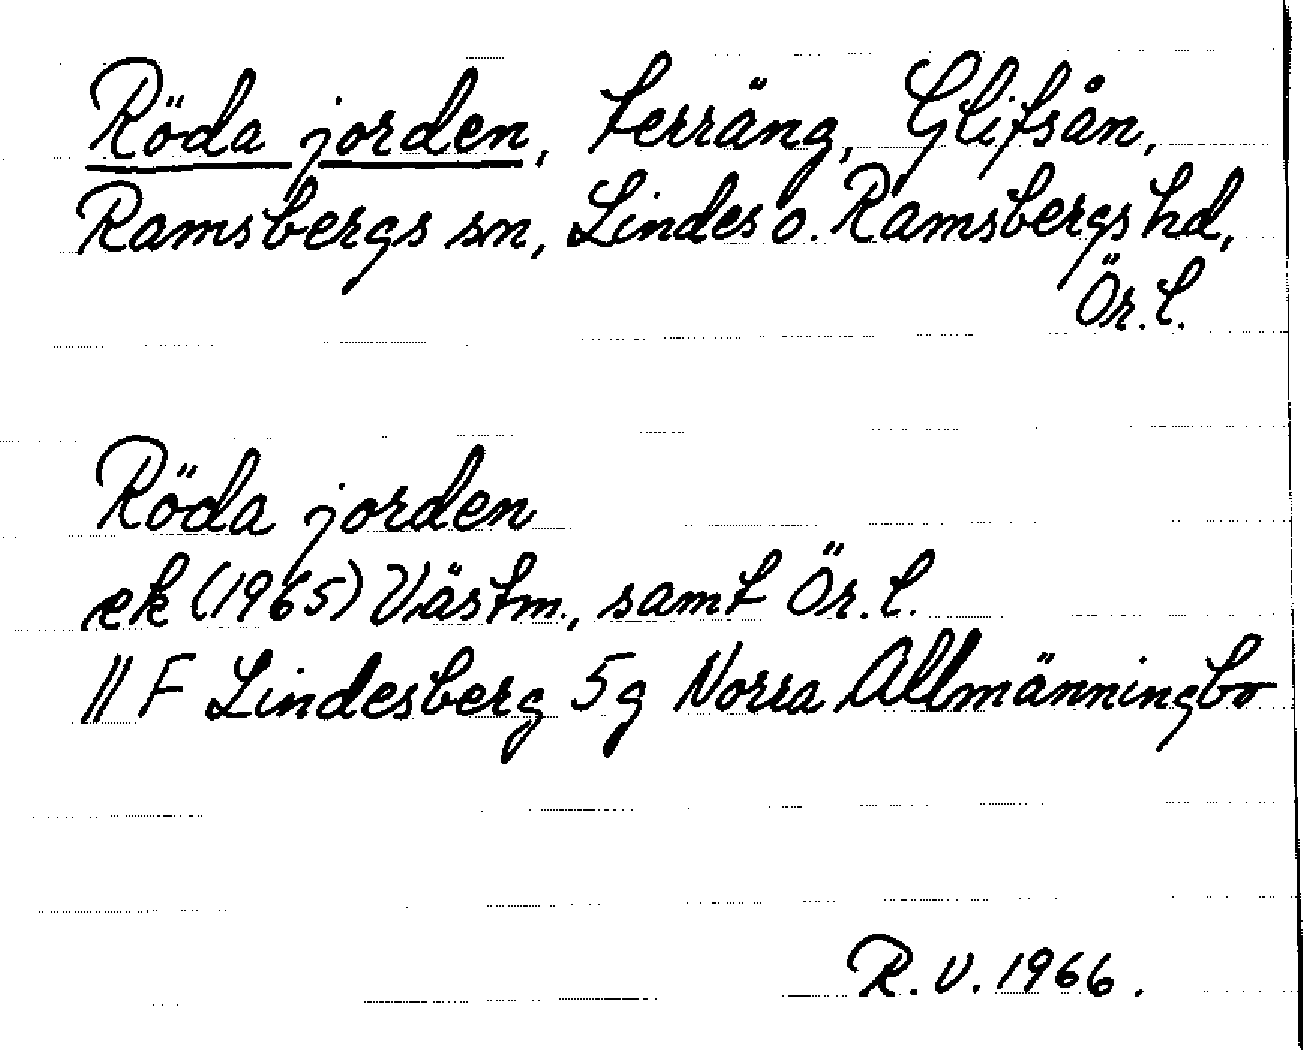 Röda jorden, terräng, Glifsån,
Ramsbergs sn, Lindes o. Ramsbergs hd,
Ör. l.
Röda jorden
ek (1965) Västm., samt Ör. l.
11 F Lindesberg 5g Norra Allmänningbo
R.V. 1966.